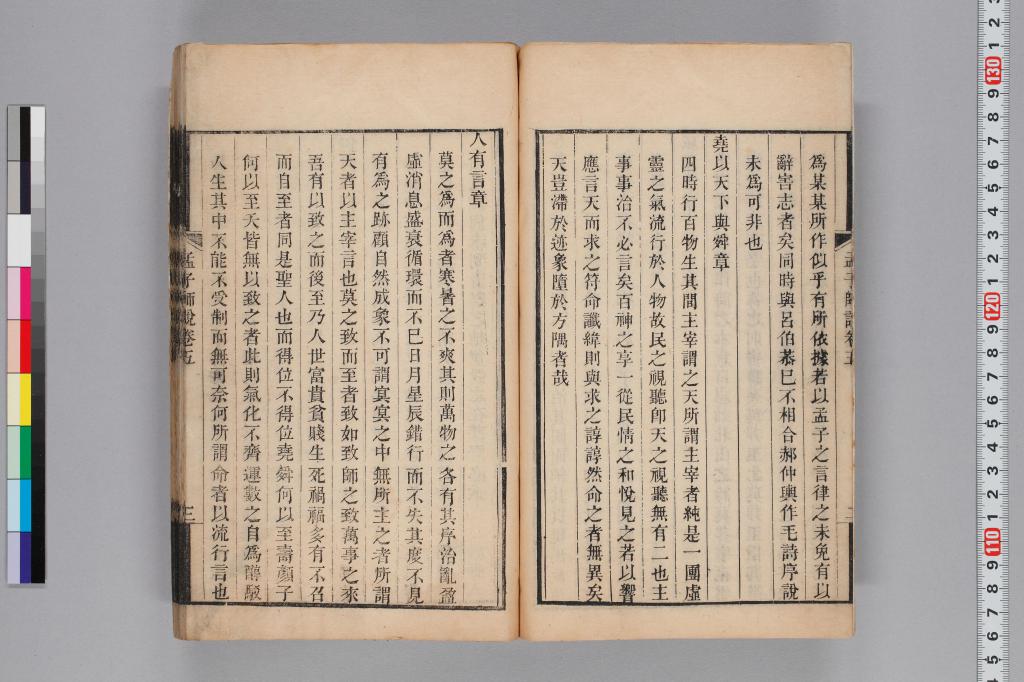 爲某某所作似乎有所依據若以孟子之言律之未免有以
辭害志者矣同時與呂伯恭巳不相合郝仲輿作毛詩序說
未爲可非也
堯以天下與舜章
四時行百物生其間主宰謂之天所謂主宰者純是一團虛
靈之氣流行於人物故民之視聽卽天之視聽無有二也主
事事治不必言矣百神之享一從民情之和悅見之若以響
應言天而求之符命讖緯則與求之諄諄然命之者無異矣
天豈滯於迹象墮於方隅者哉
孟子師說卷五
二
人有言章
莫之爲而爲者寒暑之不爽其則萬物之各有其序治亂盈
虛消息盛衰循環而不巳日月星辰錯行而不失其度不見
有爲之跡顧自然成象不可謂冥冥之中無所主之者所謂
天者以主宰言也莫之致而至者致如致師之致萬事之來
吾有以致之而後至乃人世富貴貧賤生死禍福多有不召
而自至者同是聖人也而得位不得位堯舜何以至壽顏子
何以至夭皆無以致之者此則氣化不齊運數之自爲醇駁
人生其中不能不受制而無可奈何所謂命者以流行言也
孟子師說卷五
三
120
110
130